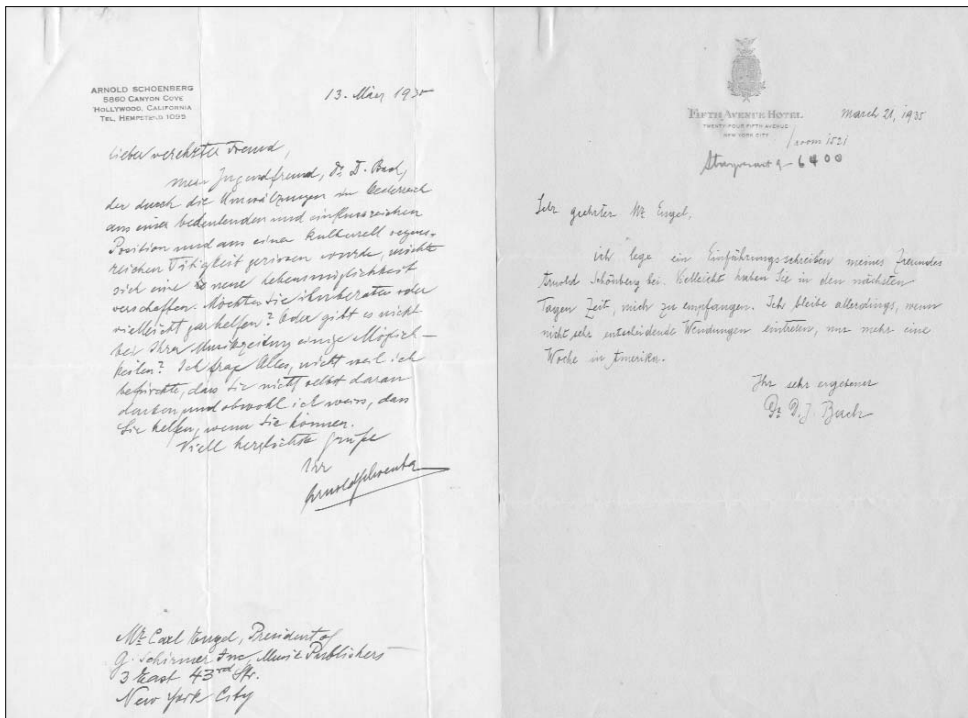 ARNOLD SCHOENBERG
5860 CANYON COVE
HOLLYWOOD, CALIFORNIA
TEL. HEMPSTEAD 1095
13. März 1935
Lieber verehrter Freund,
mein Jugendfreund, Dr. D. Bach,
der durch die Umwälzungen in Oesterreich
aus einer bedeutenden und einflussreichen
Position und aus einer kulturell segens-
reichen Tätigkeit gerissen wurde, möchte
sich eine neue Lebensmöglichkeit
verschaffen. Möchten Sie ihn beraten oder
vielleicht gar helfen? Oder gibt es nicht
bei Ihrer Musikzeitung einige Möglich-
keiten? Ich frage Alles, nicht weil ich
befürchte, dass Sie nicht selbst daran
denken, und obwohl ich weiss, dass
Sie helfen, wenn Sie können.
Viele herzlichste Grüße
Ihr
Arnold Schoenberg
Mr. Carl Engel, President of
G. Schirmer Inc, Music Publishers
3 East 43rd Str.
New York City
FIFTH AVENUE HOTEL
TWENTY-FOUR FIFTH AVENUE
NEW YORK CITY
March 21, 1935
/ room 1521
Stuyvesant 9-6400
Sehr geehrter Mr. Engel,
ich lege ein Einführungsschreiben meines Freundes
Arnold Schönberg bei. Vielleicht haben Sie in den nächsten
Tagen Zeit, mich zu empfangen. Ich bleibe allerdings, wenn
nicht sehr entscheidende Wendungen eintreten, nur mehr eine
Woche in Amerika.
Ihr sehr ergebener
Dr. D. J. Bach